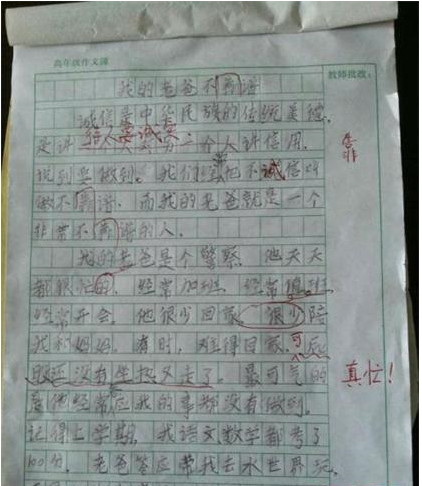 高年级作文课
教师批改:
我的老爸不靠谱
诚信是中华民族的传统美德,
是讲给人要诚实一个人讲信用,
说到要做到。我们常把不诚信叫
做不靠谱,而我的老爸就是一个
非常不靠谱的人。
靠
我的老爸是个警察,他天天
都很忙的,经常加班,经常值班
经常开会。他很少回家,很少陪
我和妈妈。有时,难得回家,可屁
股还没有坐热又走了。最可气的
真忙!
是他经常应我的事都没有做到。
记得上学期,我语文数学都考了
100分,老爸答应带我去水世界玩,